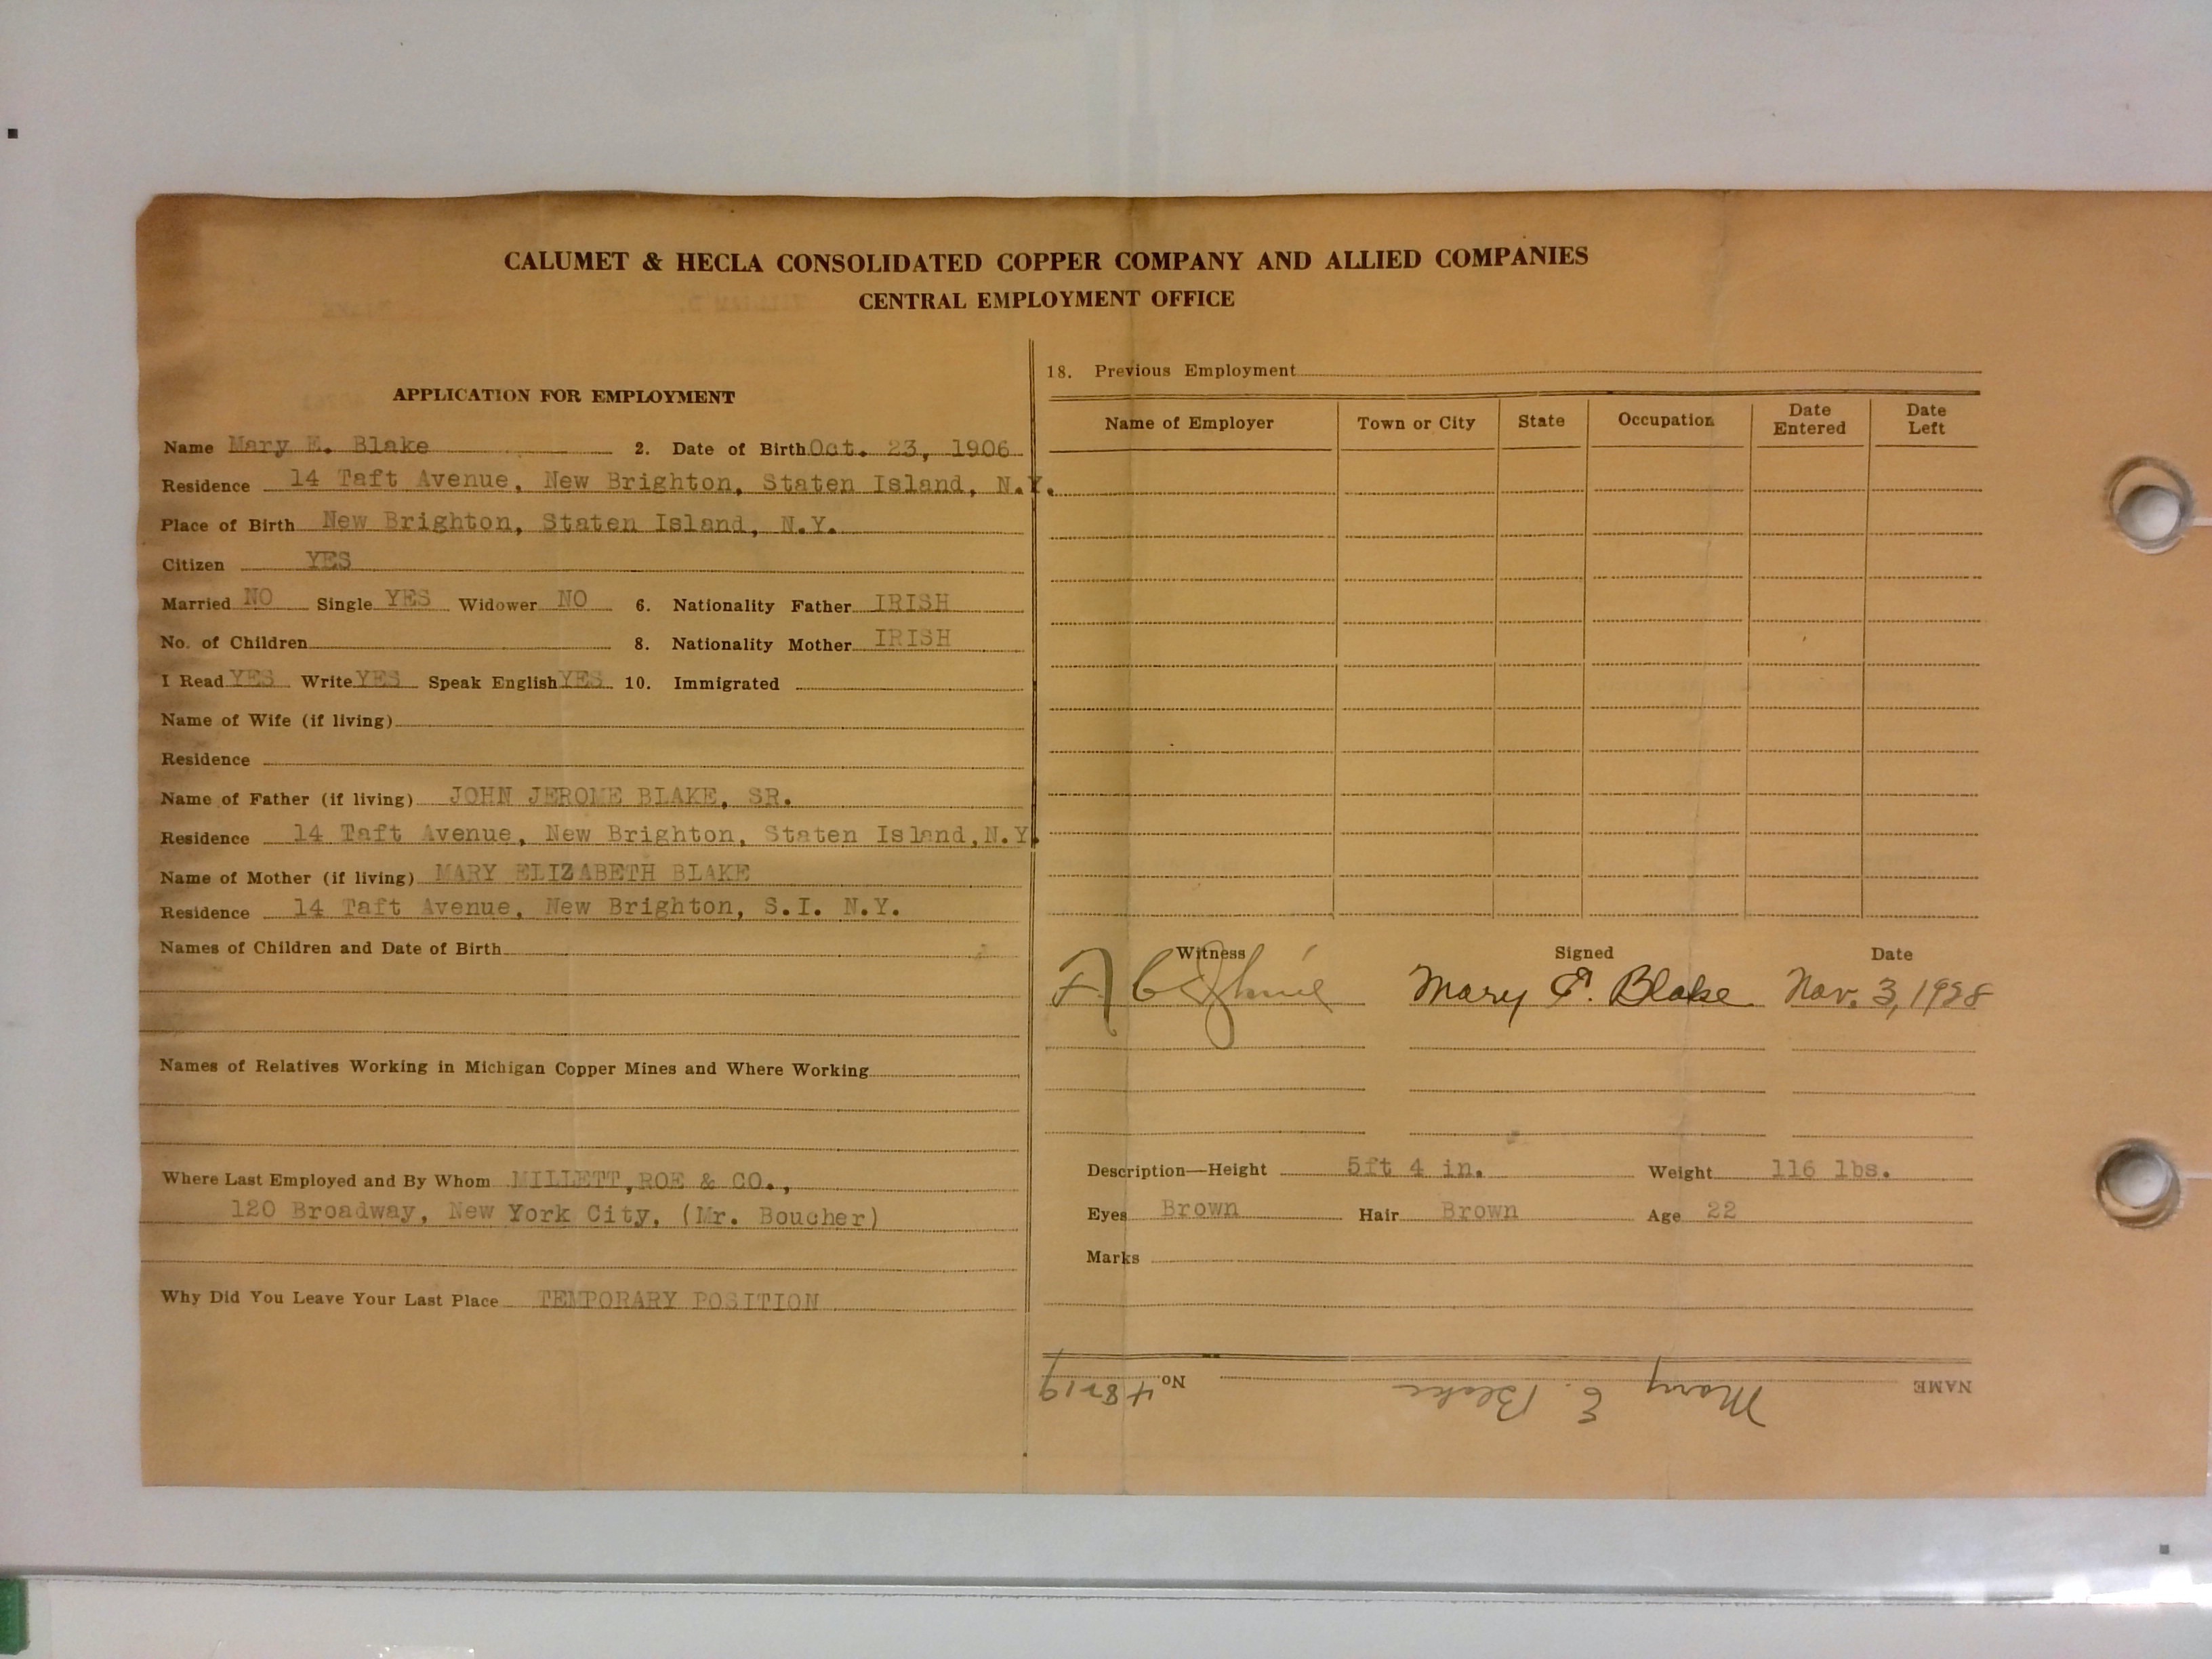 CALUMET & HECLA CONSOLIDATED COPPER COMPANY AND ALLIED COMPANIES
CENTRAL EMPLOYMENT OFFICE
APPLICATION FOR EMPLOYMENT
Name Mary E. Blake 2. Date of Birth Oct. 23, 1906
Residence 14 Taft Avenue, New Brighton, Staten Island, N.Y.
Place of Birth New Brighton, Staten Island, N.Y.
Citizen YES
Married NO Single YES Widower NO 6. Nationality Father IRISH
No. of Children 8. Nationality Mother IRISH
I Read YES Write YES Speak English YES 10. Immigrated
Name of Wife (if living)
Residence
Name of Father (if living) JOHN JEROME BLAKE, SR.
Residence 14 Taft Avenue, New Brighton, Staten Island,N.Y.
Name of Mother (if living) MARY ELIZABETH BLAKE
Residence 14 Taft Avenue, New Brighton, S.I. N.Y.
Names of Children and Date of Birth
Names of Relatives Working in Michigan Copper Mines and Where Working
Where Last Employed and By Whom MILLETT,ROE & CO.,
120 Broadway, New York City, (Mr. Boucher)
Why Did You Leave Your Last Place TEMPORARY POSITION
18. Previous Employment
Name of Employer Town or City State Occupation Date Entered Date Left
Witness Signed Date
Mary E. Blake Nov. 3, 1928
Description—Height 5ft 4 in. Weight 116 lbs.
Eyes Brown Hair Brown Age 22
Marks
NAME Mary E. Blake No.